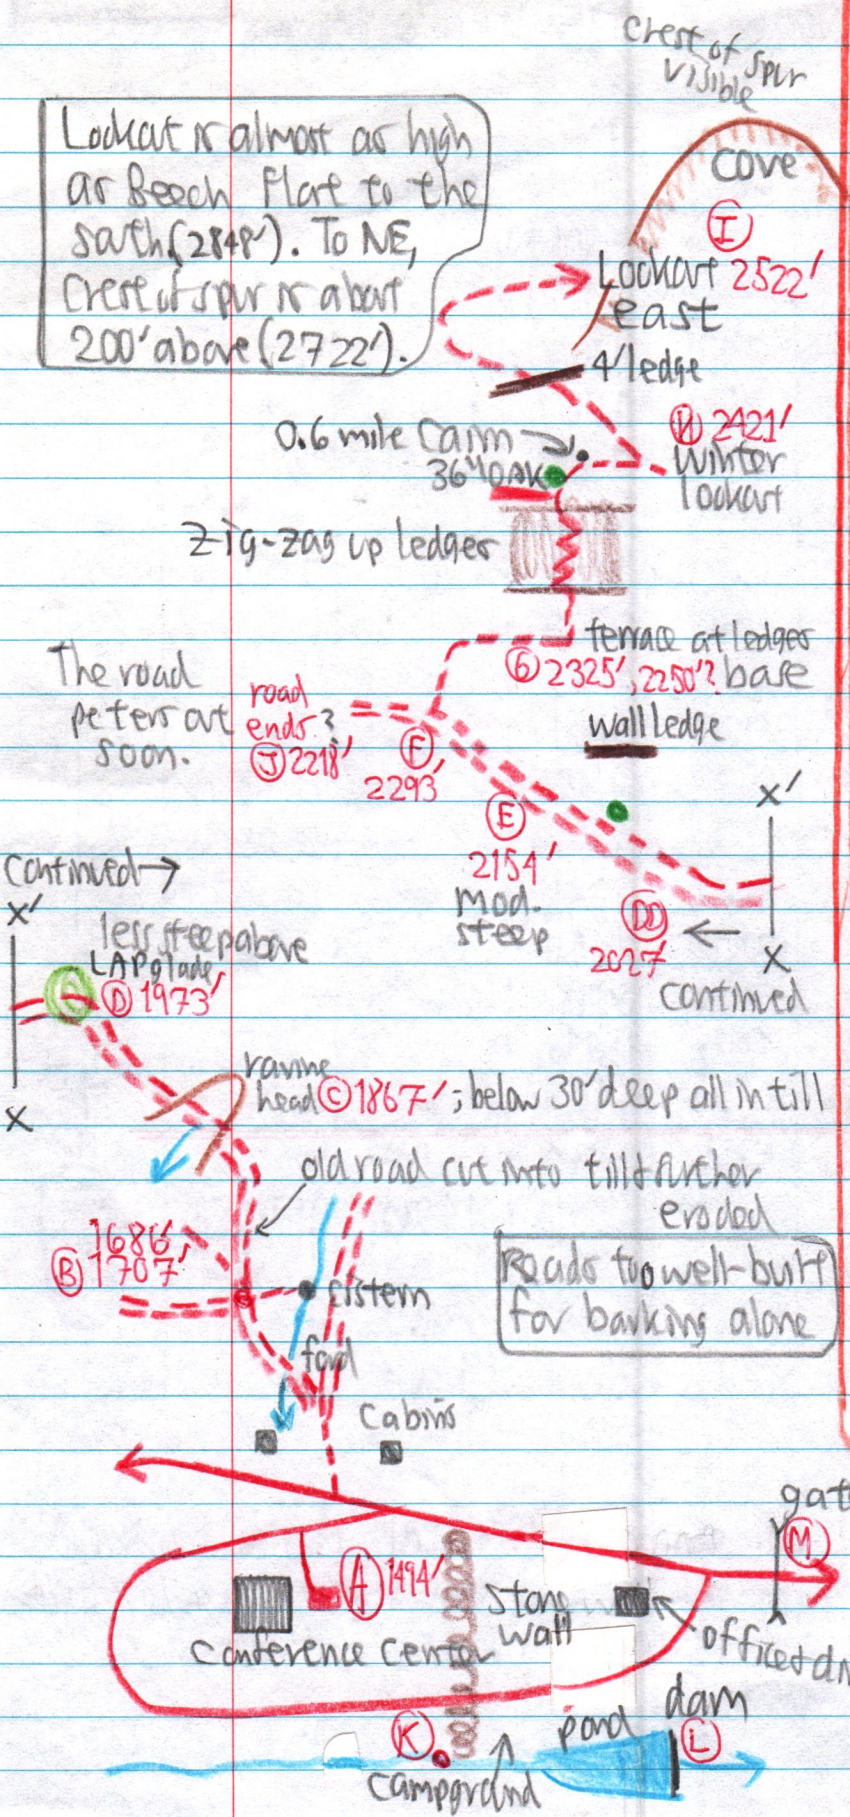 Crest of spur
visible
Lookout is almost as high
as Beech Flat to the
south (2848'). To NE,
Crest of spur is about
200' above (2722').
Cove
I
Lookout 2522'
east
4' ledge
H 2421'
Winter
lookout
0.6 mile Cairn
36" OAK
Zig-zag up ledges
terrace at ledges
base
G 2325', 2250'?
The road
peters out
soon.
road
ends?
J 2218'
wall ledge
F
2293'
E
2154'
Mod.
steep
X'
DD
2027'
X
continued
continued
X'
less steep above
LAP glade
D 1973'
X
ravine
head C 1867'; below 30' deep all in till
old road cut into till & further
eroded
1686'
B 1707'
cistern
Roads too well-built
for barking alone
ford
Cabins
gat
M
A 1494'
Stone
wall
Conference Center
office & di
K
pond
dam
L
Campground